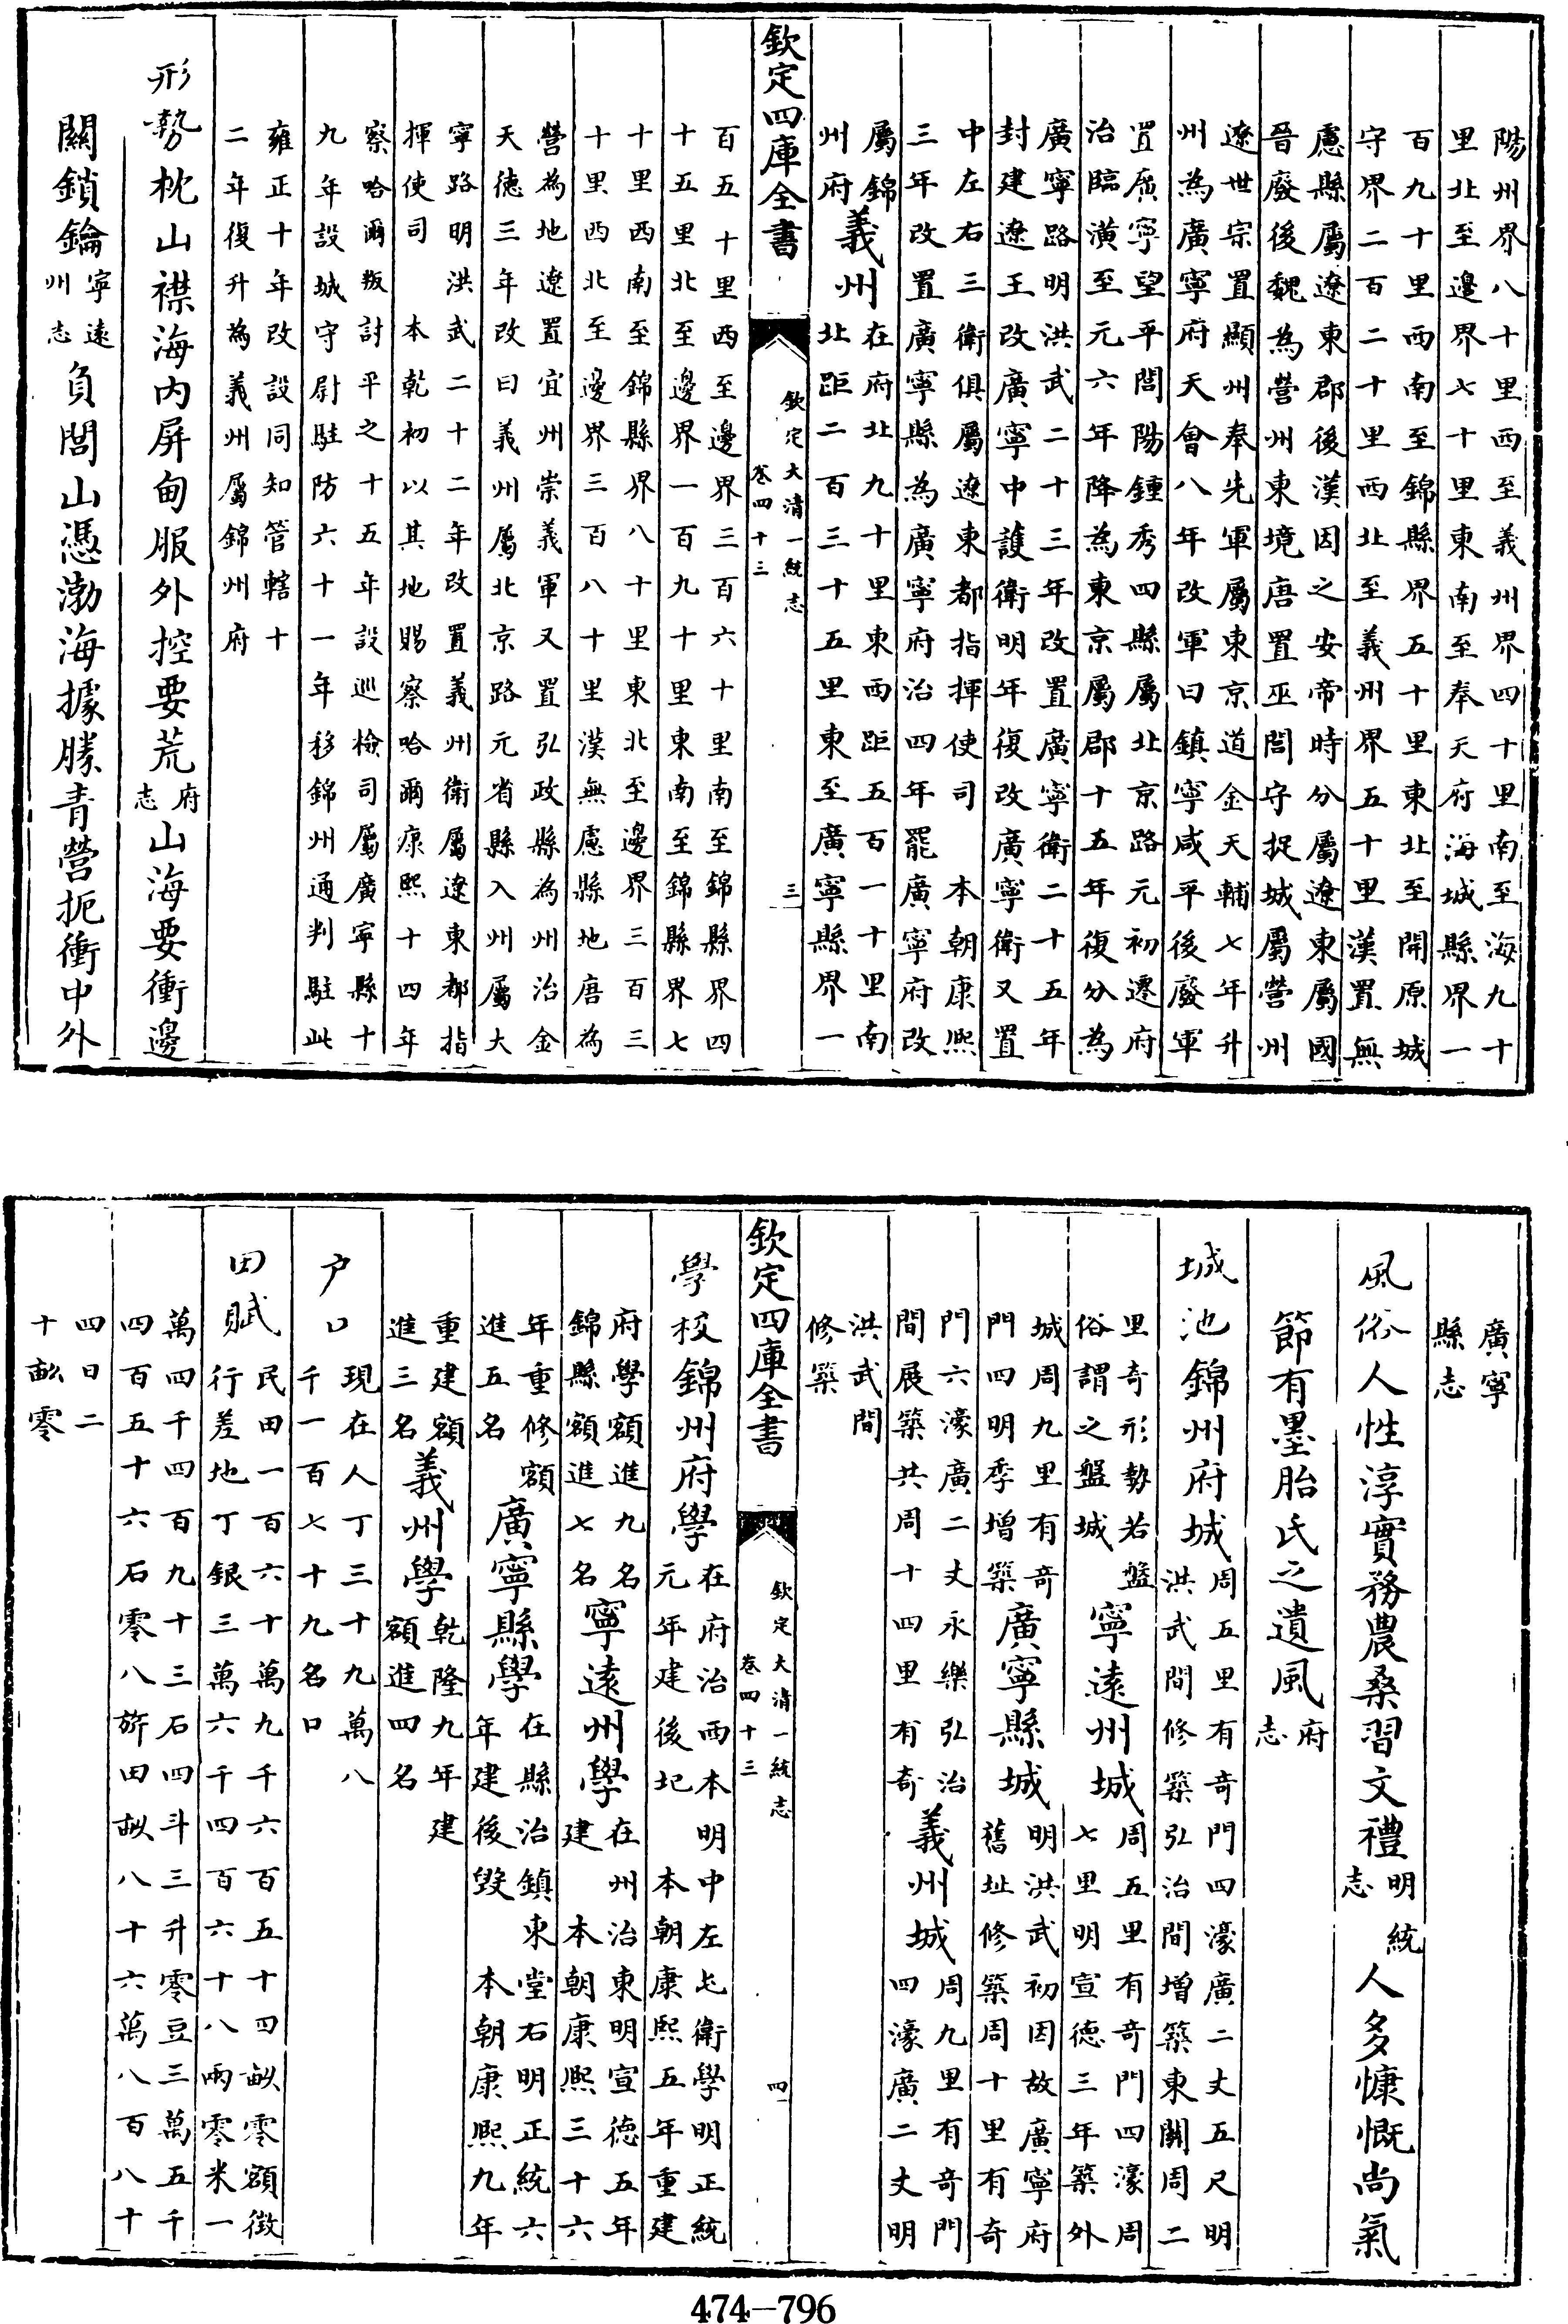 陽州界八十里西至義州界四十里南至海九十
里北至邊界七十里東南至奉天府海城縣界一
百九十里西南至錦縣界五十里東北至開原城
守界二百二十里西北至義州界五十里漢置無
慮縣屬遼東郡後漢因之安帝時分屬遼東屬國
晉廢後魏為營州東境唐置巫閭守捉城屬營州
遼世宗置顯州奉先軍屬東京道金天輔七年升
州為廣寧府天會八年改軍曰鎮寧咸平後廢軍
置廣寧望平閭陽鍾秀四縣屬北京路元初遷府
治臨潢至元六年降為東京屬郡十五年復分為
廣寧路明洪武二十三年改置廣寧衛二十五年
封建遼王改廣寧中護衛明年復改廣寧衛又置
中左右三衛俱屬遼東都指揮使司 本朝康熙
三年改置廣寧縣為廣寧府治四年罷廣寧府改
屬錦州府義州在府北九十里東西距五百一十里南北距二百三十五里東至廣寧縣界一
欽定四庫全書 欽定大清一統志 卷四十三 三
百五十里西至邊界三百六十里南至錦縣界四
十五里北至邊界一百九十里東南至錦縣界七
十里西南至錦縣界八十里東北至邊界三百三
十里西北至邊界三百八十里漢無慮縣地唐為
營為地遼置宜州崇義軍又置弘政縣為州治金
天德三年改曰義州屬北京路元省縣入州屬大
寧路明洪武二十二年改置義州衛屬遼東都指
揮使司 本乾初以其地賜察哈爾康熙十四年
察哈爾叛討平之十五年設巡檢司屬廣寧縣十
九年設城守尉駐防六十一年移錦州通判駐此
雍正十年改設同知管轄十
二年復升為義州屬錦州府
形勢枕山襟海內屏甸服外控要荒府志山海要衝邊
關鎖鑰寧遠州志負閭山憑渤海據勝青營扼衝中外
廣寧縣志
風俗人性淳實務農桑習文禮明統志人多慷慨尚氣
節有墨胎氏之遺風府志
城池錦州府城周五里有奇門四濠廣二丈五尺明洪武間修築弘治間增築東關周二
里奇形勢若盤俗謂之盤城寧遠州城周五里有奇門四濠周七里明宣德三年築外
城周九里有奇門四明季增築廣寧縣城明洪武初因故廣寧府舊址修築周十里有奇
門六濠廣二丈永樂弘治間展築共周十四里有奇義州城周九里有奇門四濠廣二丈明
洪武間修築
欽定四庫全書 欽定大清一統志 卷四十三 四
學校錦州府學在府治西本明中左屯衛學明正統元年建後圮 本朝康熙五年重建
府學額進九名錦縣額進七名寧遠州學在州治東明宣德五年建 本朝康熙三十六
年重修額進五名廣寧縣學在縣治鎮東堂右明正統六年建後毀 本朝康熙九年
重建額進三名義州學乾隆九年建額進四名
戶口現在人丁三十九萬八千一百七十九名口
田賦民田一百六十萬九千六百五十四畝零額徵行差地丁銀三萬六千四百六十八兩零米一
萬四千四百九十三石四斗三升零豆三萬五千
四百五十六石零八旂田畝八十六萬八百八十
四日二
十畝零
474-796